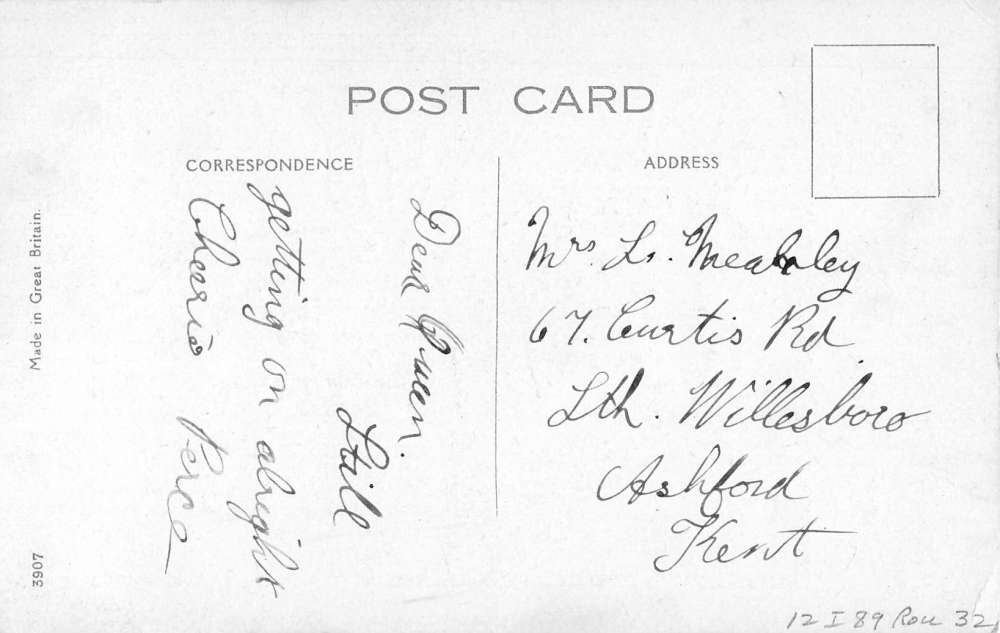 POST CARD
CORRESPONDENCE
Dear Queen.
Still
getting on alright
Cheerio Perce
ADDRESS
Mrs. L. Meakley
67. Curtis Rd
Sth. Willesboro
Ashford
Kent
Made in Great Britain.
3907
12 I 89 Rou 32